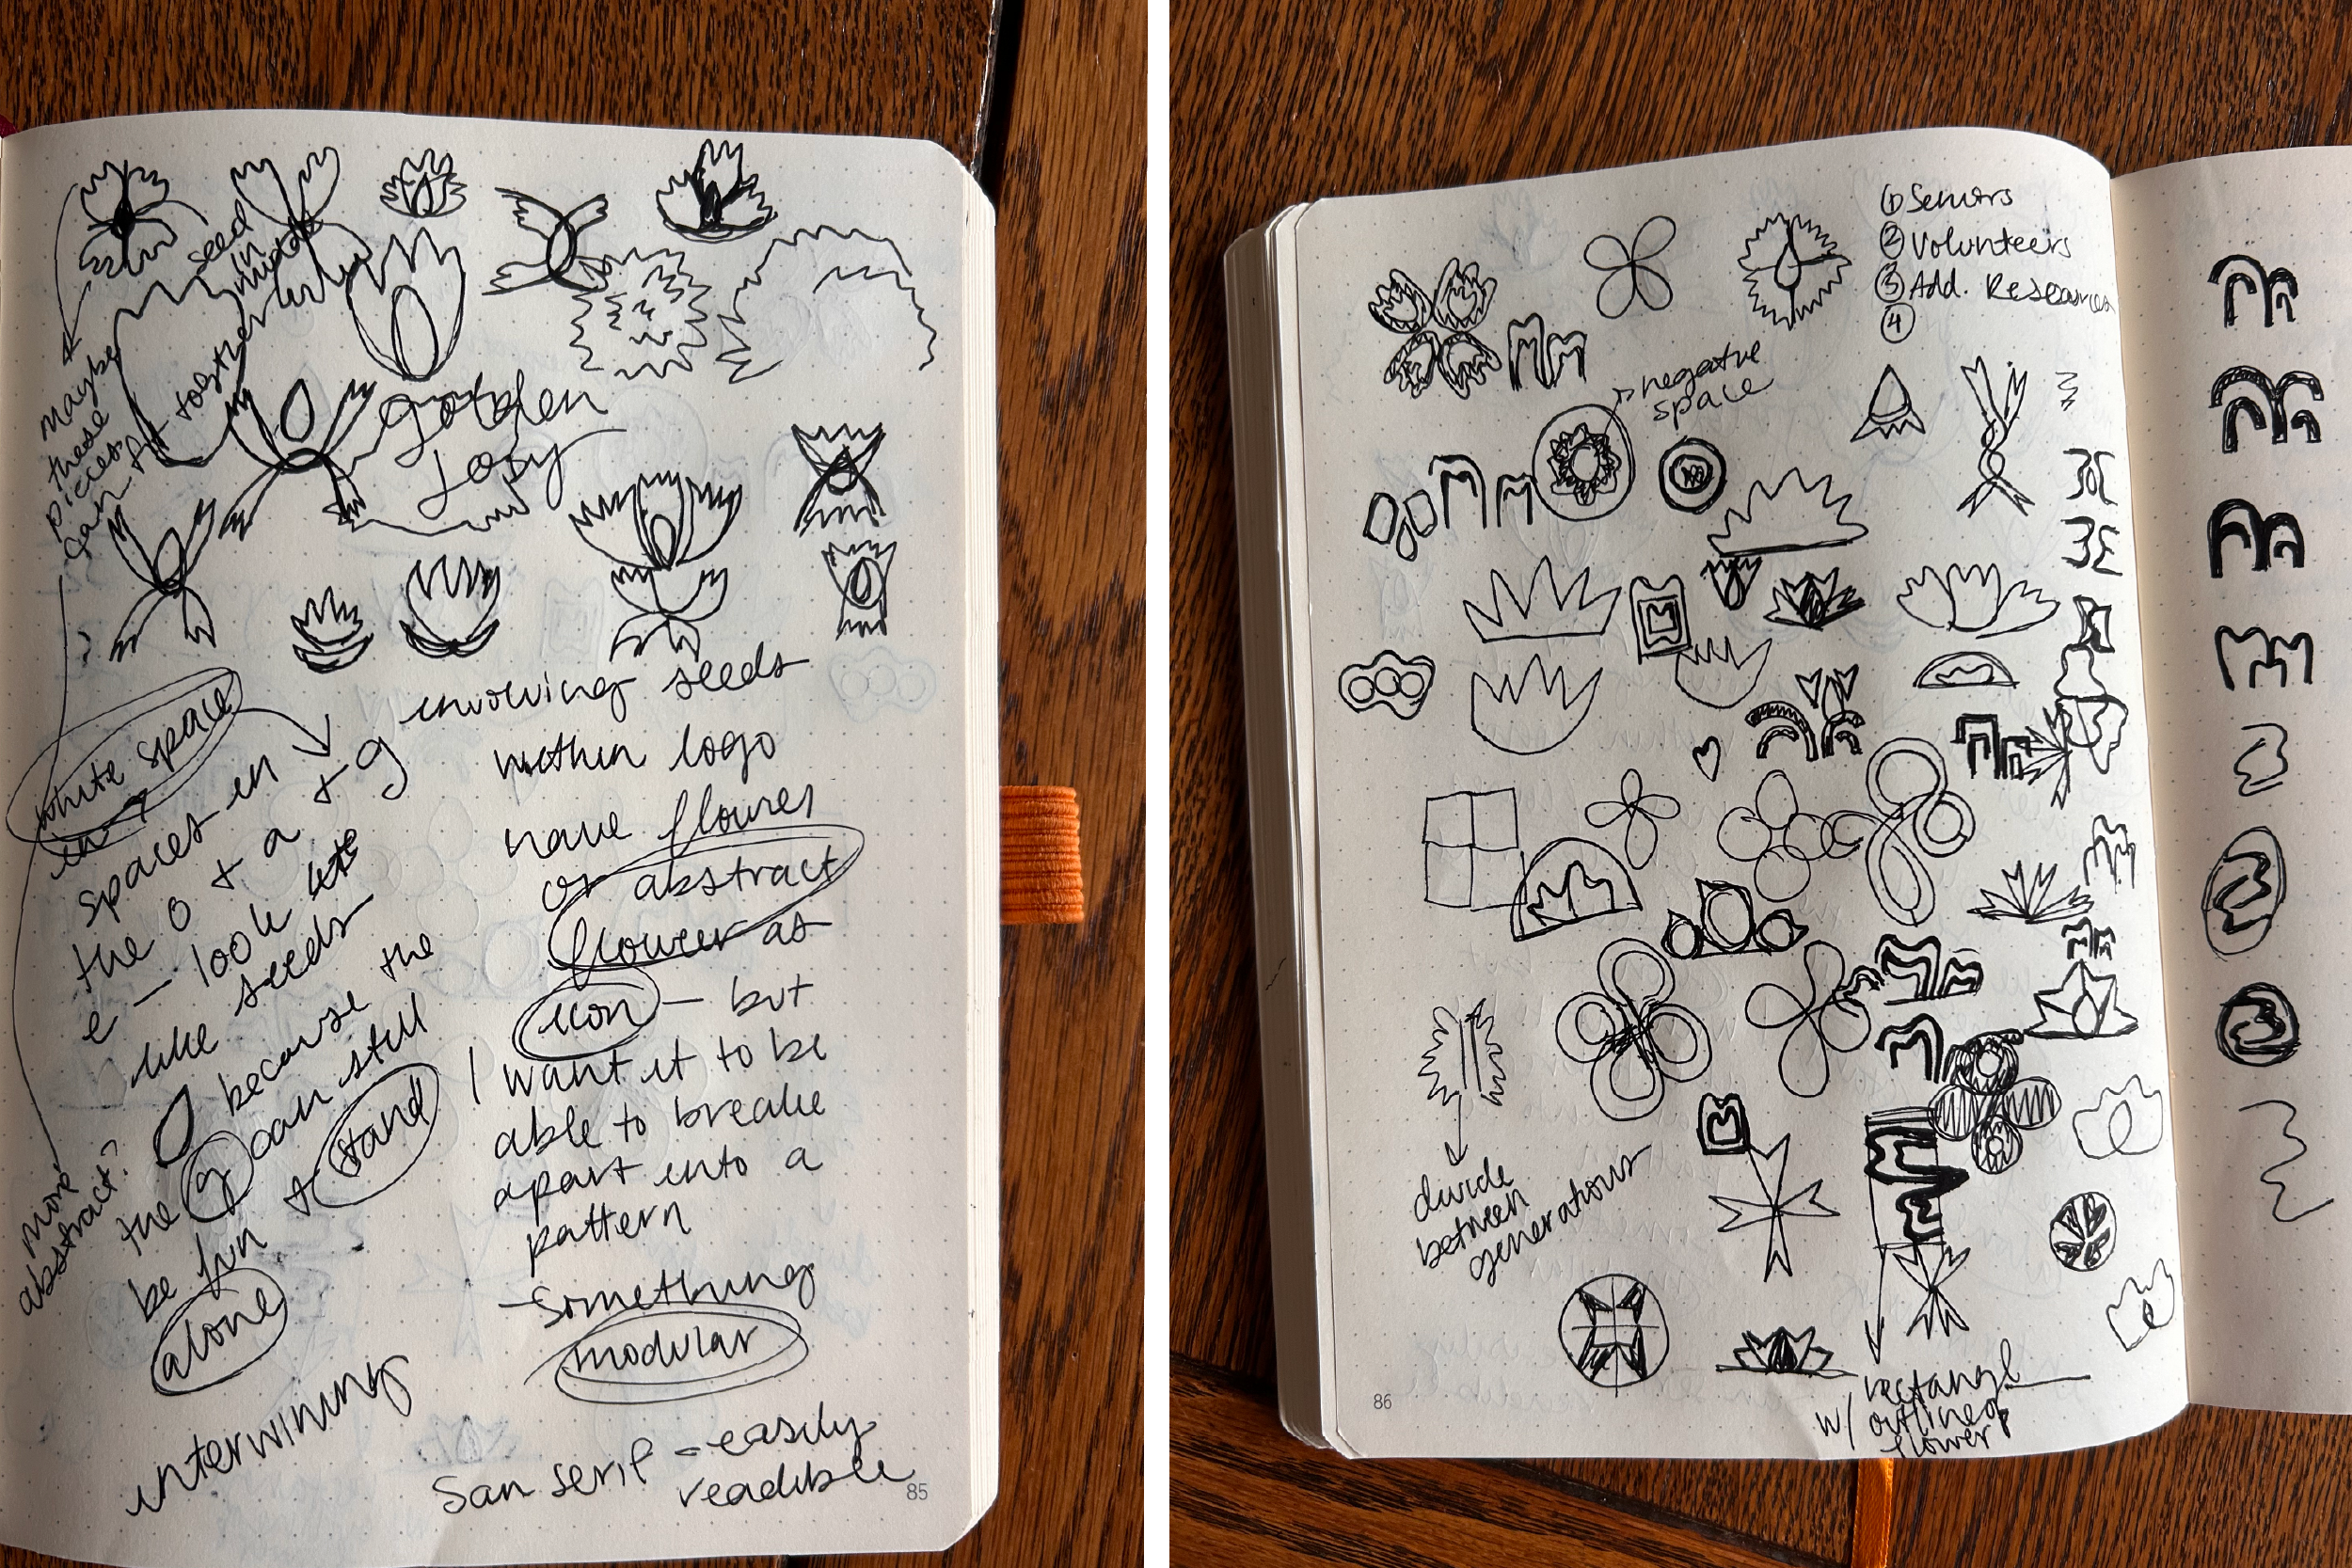 seed
in
middle
maybe
these
pieces
can fit together
golden
white space
in
spaces in + g
the o + a
e - look
like seeds
because the
the g can still
be fun + stand
alone
more
abstract?
intertwining
involving seeds
within logo
have flower
or abstract
flower as
icon - but
I want it to be
able to break
apart into a
pattern
- something
modular
San serif - easily
readible
85
① Seniors
② Volunteers
③ Add. Resources
④
negative
space
divide
between
generations
rectangl
w/ outline of
flower
86